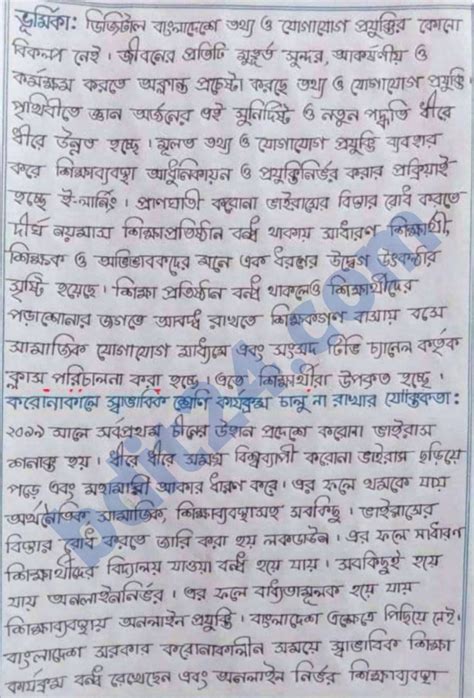 ভূমিকা: ডিজিটাল বাংলাদেশে তথ্য ও যোগাযোগ প্রযুক্তির কোনো
বিকল্প নেই। জীবনের প্রতিটি মুহূর্ত সুন্দর, আকর্ষণীয় ও
কর্মক্ষম করতে অক্লান্ত প্রচেষ্টা করছে তথ্য ও যোগাযোগ প্রযুক্তি।
পৃথিবীতে জ্ঞান অর্জনের এই সুনির্দিষ্ট ও নতুন পদ্ধতি ধীরে
ধীরে উন্নত হচ্ছে। মূলত তথ্য ও যোগাযোগ প্রযুক্তি ব্যবহার
করে শিক্ষাব্যবস্থা আধুনিকায়ন ও প্রযুক্তিনির্ভর করার প্রক্রিয়াই
হচ্ছে ই-লার্নিং। প্রাণঘাতী করোনা ভাইরাসের বিস্তার রোধ করতে
দীর্ঘ নয়মাস শিক্ষাপ্রতিষ্ঠান বন্ধ থাকায় সাধারণ শিক্ষার্থী,
শিক্ষক ও অভিভাবকদের মনে এক ধরণের উদ্বেগ উৎকণ্ঠার
সৃষ্টি হয়েছে। শিক্ষা প্রতিষ্ঠান বন্ধ থাকলেও শিক্ষার্থীদের
পড়াশোনার জগতে আবদ্ধ রাখতে শিক্ষকগণ বাসায় বসে
সামাজিক যোগাযোগ মাধ্যমে এবং সংসদ টিভি চ্যানেল কর্তৃক
ক্লাস পরিচালনা করা হচ্ছে। এতে শিক্ষার্থীরা উপকৃত হচ্ছে।
করোনাকালে স্বাভাবিক শ্রেণি কার্যক্রম চালু না রাখার যৌক্তিকতা:
২০১৯ সালে সর্বপ্রথম চীনের উহান প্রদেশে করোনা ভাইরাস
শনাক্ত হয়। ধীরে ধীরে সমগ্র বিশ্বব্যাপী করোনা ভাইরাস ছড়িয়ে
পড়ে এবং মহামারী আকার ধারণ করে। এর ফলে থমকে যায়
অর্থনৈতিক সামাজিক, শিক্ষাব্যবস্থাসহ সবকিছু। ভাইরাসের
বিস্তার রোধ করতে জারি করা হয় লকডাউন। এর ফলে সাধারণ
শিক্ষার্থীদের বিদ্যালয় যাওয়া বন্ধ হয়ে যায়। সবকিছুই হয়ে
যায় অনলাইননির্ভর। এর ফলে বাধ্যতামূলক হয়ে যায়
শিক্ষাব্যবস্থায় অনলাইন প্রযুক্তি। বাংলাদেশ এক্ষেত্রে পিছিয়ে নেই।
বাংলাদেশ সরকার করোনাকালীন সময়ে স্বাভাবিক শিক্ষা
কার্যক্রম বন্ধ রেখেছেন এবং অনলাইন নির্ভর শিক্ষাব্যবস্থা